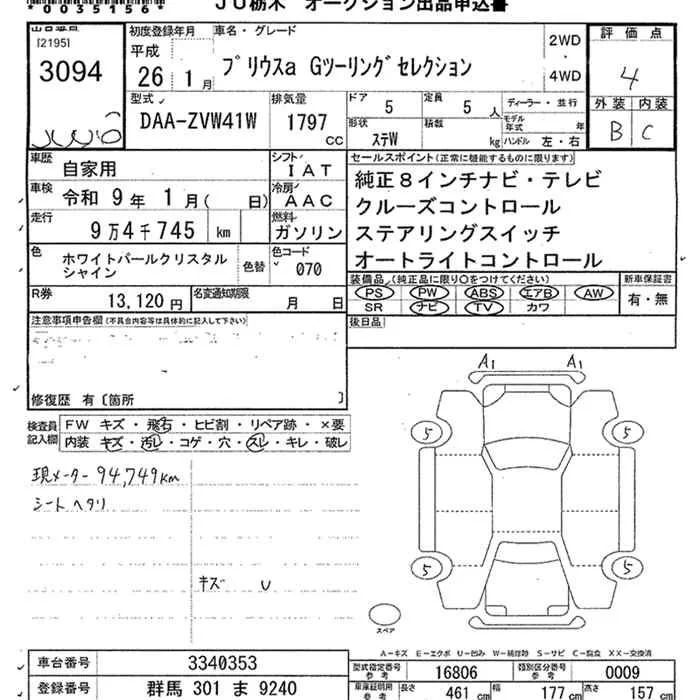 *0035156*
JU栃木 オークション出品申込書
出品番号
[2195]
3094
初度登録年月
平成
26年1月
車名・グレード
プリウスa Gツーリングセレクション
2WD
・
4WD
評価点
4
外装 内装
B C
型式
DAA-ZVW41W
排気量
1797
CC
ドア
5
定員
5 人
ディーラー・並行
形状
ステW
積載
kg
モデル年式
年
ハンドル 左・右
車歴
自家用
シフト
IAT
車検
令和 9年 1月( 日)
冷房
AAC
走行
9万4千745 km
燃料
ガソリン
色
ホワイトパールクリスタルシャイン
色替
色コード
070
R券
13,120円
名変通知期限
月 日
セールスポイント(正常に機能するものに限ります)
純正8インチナビ・テレビ
クルーズコントロール
ステアリングスイッチ
オートライトコントロール
装備品(純正品に限り○をつけてください)
PS PW ABS エアB AW
SR ナビ TV カワ
新車保証書
有・無
後日品
注意事項申告欄(不具合内容等は具体的に記入して下さい)
修復歴 有〔箇所 〕
検査員記入欄
FW キズ・飛石・ヒビ割・リペア跡・×要
内装 キズ・汚レ・コゲ・穴・スレ・キレ・破レ
現メーター 94,749km
シートヘタリ
キズ U
A1 A1
5 5
5 5
スペア
A-キズ E-エクボ U-凹み W-補修跡 S-サビ C-腐食 XX-交換済
車台番号
3340353
登録番号
群馬 301 ま 9240
型式指定番号
参考
16806
類別区分番号
参考
0009
車庫証明用
参考
長さ
461 cm
幅
177 cm
高さ
157 cm